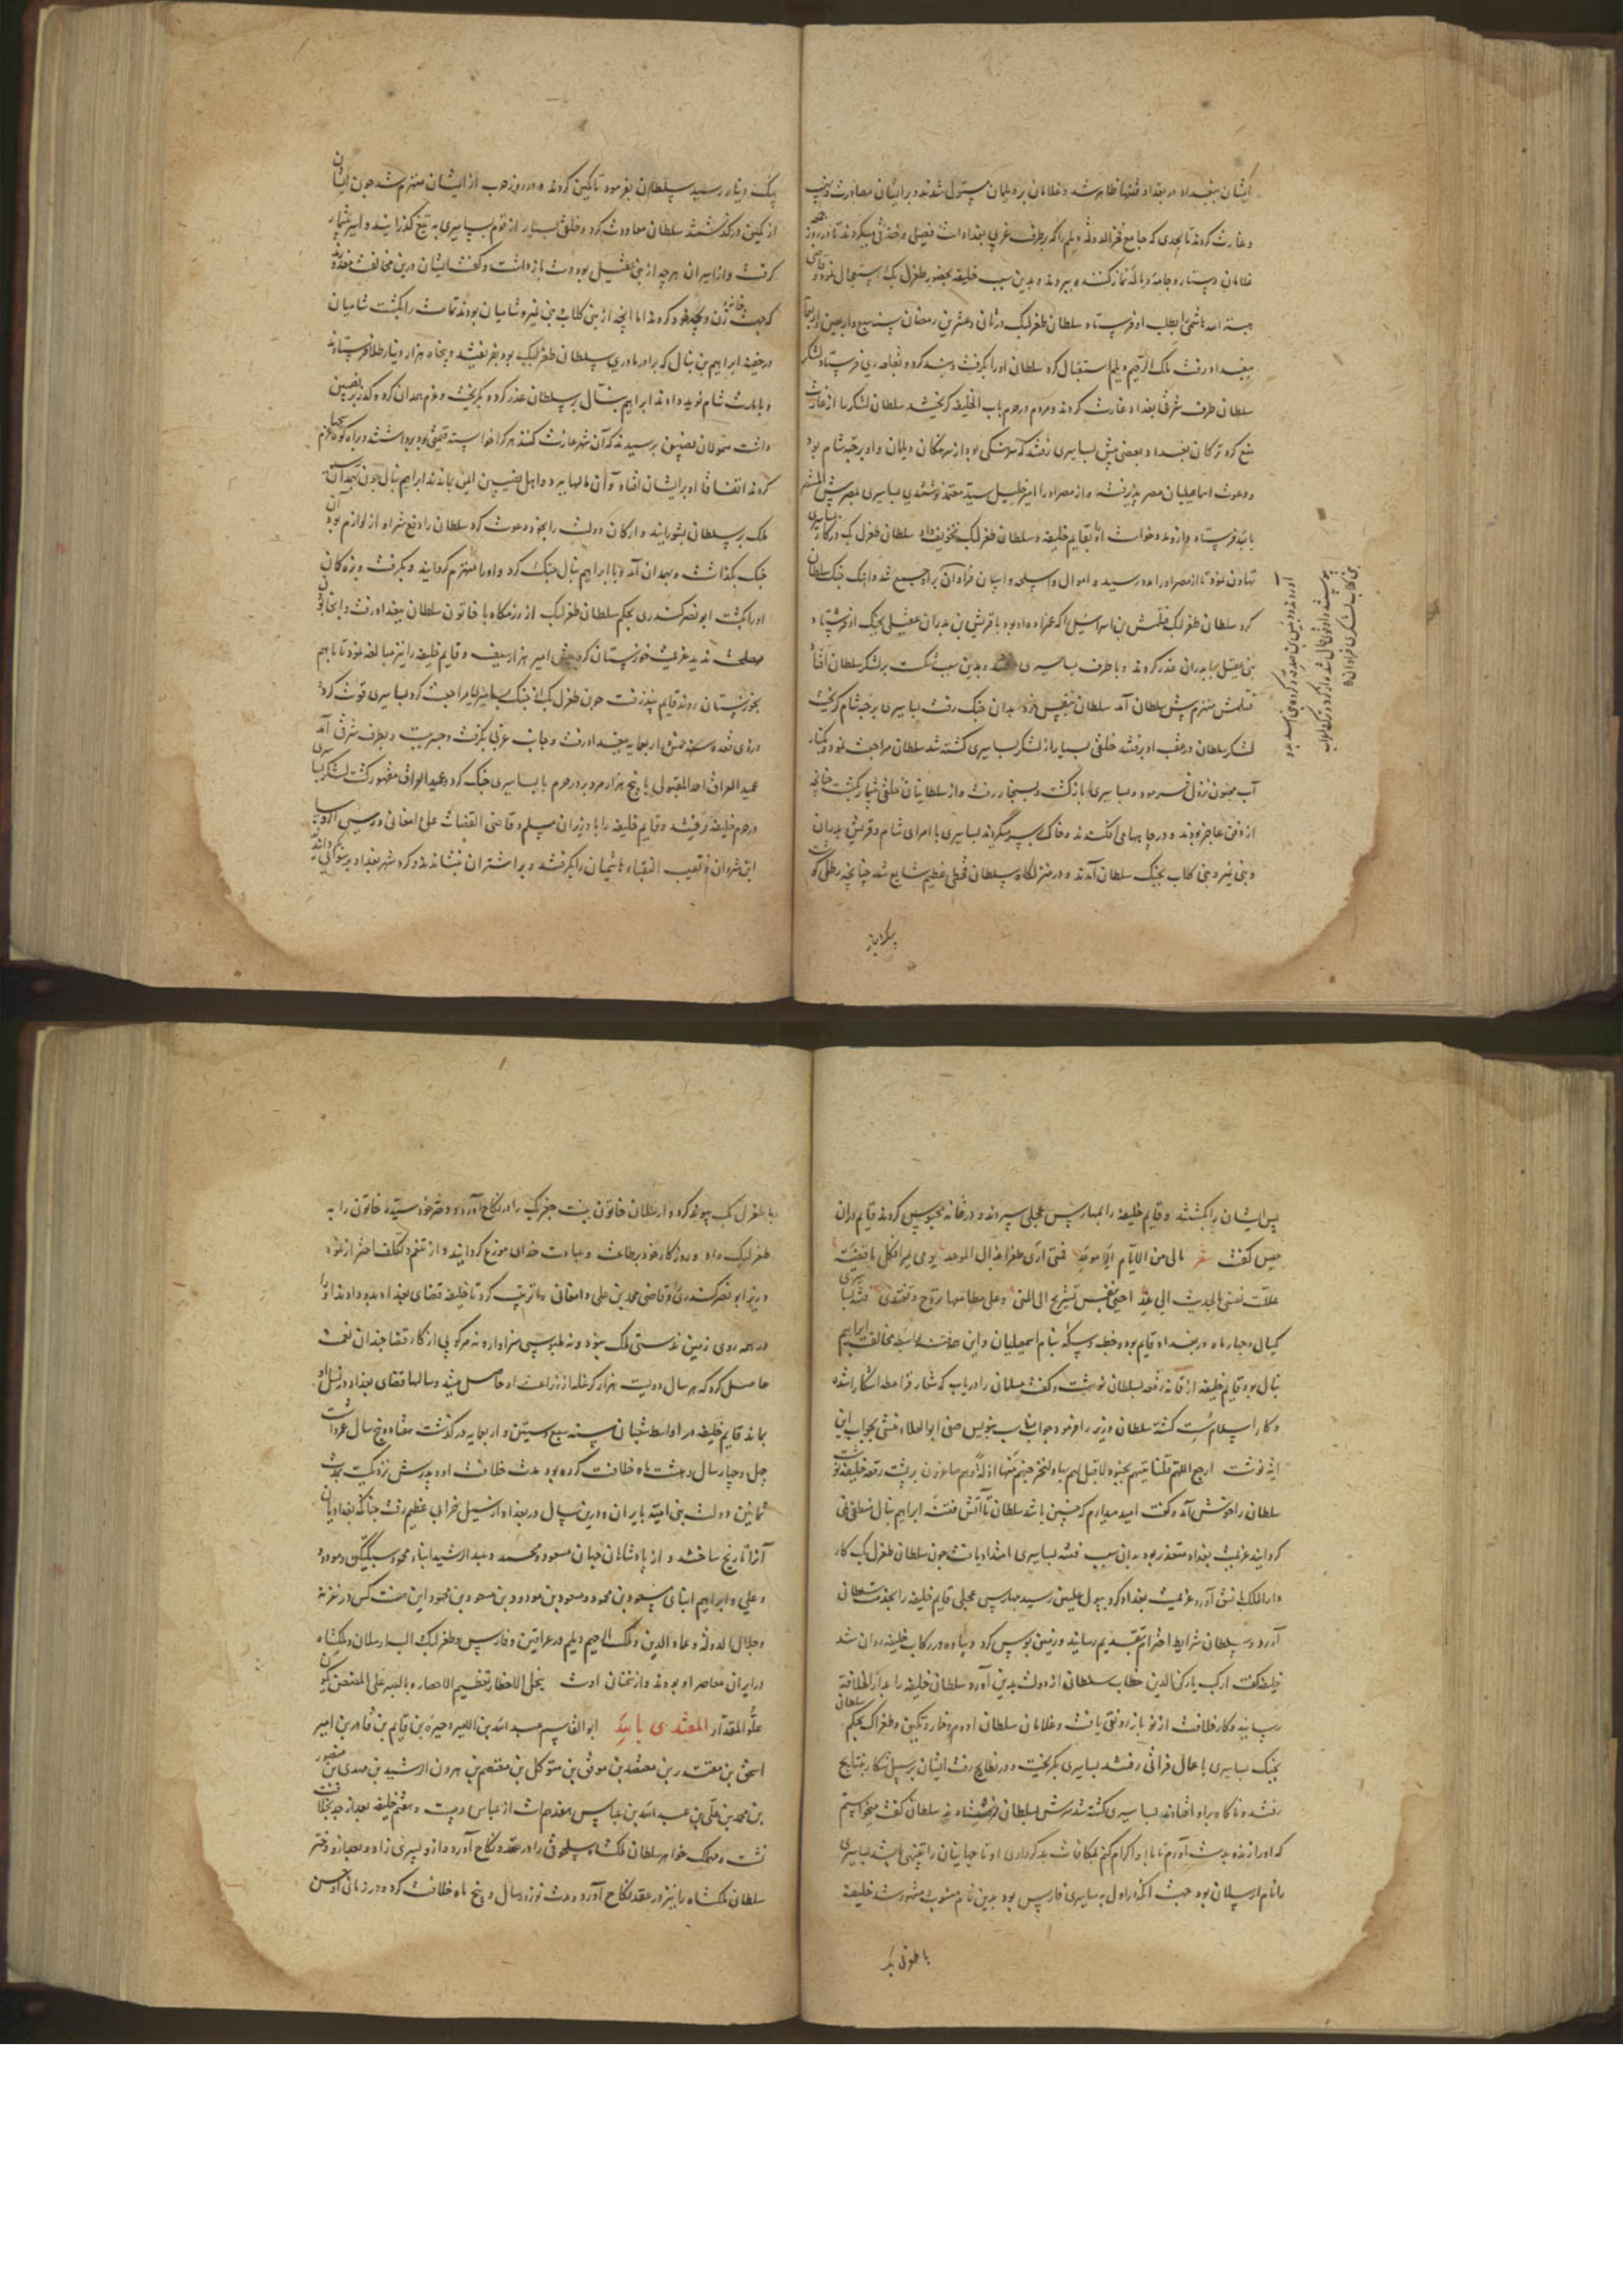 ایشان ببغداد در بغداد فتنها ظاهر شد و غلامان بر دیلمان مستولی شدند و بر ایشان مصادرت و نهب
و غارت کردند تا بحدی که جامع فخرالدوله دیلم را که بر طرف غربی بغداد است فصیل و خندق میکردند تا در روز جمعه
غلامان دستار و جامه دیالمه نماز کننده ببردند و بدین سبب خلیفه بحضور طغرل بک استعجال نمود و قاضی
هبة الله هاشمی را بطلب او فرستاد سلطان طغرلبک در ثانی و عشرین رمضان سنه سبع و اربعین و اربعمائه
ببغداد رفت ملک الرحیم دیلم استقبال کرد سلطان او را بگرفت و بند کرد و بقلعه ری فرستاد و لشکر
سلطان طرف شرقی بغداد غارت کردند و مردم در حرم باب الخلیفه گریختند سلطان لشکر را از غارت
منع کرد ترکان بغداد و بعضی پیش بساسیری رفتند که سرهنگی بود از سرهنگان دیلمان و او برحبه شام بود
و دعوت اسماعیلیان مصر پذیرفته و از مصر او را امیر جلیل سید معتمد نوشتندی بساسیری بمصر پیش المستنصر
بالله فرستاد و ازو مدد خواست او را بقایم خلیفه و سلطان طغرلبک تخویف داد سلطان طغرل بک در کار بساسیری
تهاون نمود تا از مصر او را مدد رسید و اموال و اسلحه و اسپان فراوان برو جمع شد و آهنگ جنگ سلطان
کرد سلطان طغرلبک قتلمش بن اسرائیل را که عمزاده او بود با قریش بن بدران عقیلی بجنگ او فرستاد
بنی عقیل با بدران غدر کردند و با طرف بساسیری شدند و بدین سبب شکست بر لشکر سلطان افتاد
قتلمش منهزم پیش سلطان آمد سلطان بنفس خود بدان جنگ رفت بساسیری برحبه شام گریخت
لشکر سلطان در عقب او برفتند خلقی بسیار از لشکر بساسیری کشته شد سلطان مراجعت نمود و بکنار
آب نزول فرمود و بساسیری بازگشت و بسنجار رفت و از سلطانیان خلقی بیشمار بکشت چنانچه
از دفن عاجز بودند و در چاهها می افکندند و خاک بر سر میکردند بساسیری با امرای شام و قریش بدران
و بنی نمیر و بنی کلاب بجنگ سلطان آمدند و در منزلگاه سلطان قحطی عظیم شایع شد چنانچه رطلی گوشت
بیک دینار
بیک دینار رسید سلطان بفرمود تا کمین کردند و در روز حرب از ایشان منهزم شد چون ایشان
از کمین درگذشتند سلطان معاودت کرد و خلقی بسیار از قوم بساسیری به تیغ گذرانید و اسیر بیشمار
گرفت و از اسیران هرچه از بنی عقیل بود دست بازداشت و گفت ایشان درین مخالفت معذورند
که جهت خانه و زن و بچه خود کردند اما آنچه از بنی کلاب و بنی نمیر و شامیان بودند تمامت را بکشت شامیان
در خفیه ابراهیم بن ینال که برادر مادری سلطان طغرلبک بود بفریفتند و پنجاه هزار دینار طلا فرستادند
و بامارت شام نوید دادند ابراهیم ینال بر سلطان غدر کرد و بگریخت و عزم همدان کرد و گذر بر نصیبین
داشت متمولان نصیبین بترسیدند که آن شهر غارت کنند هرکرا خواسته قیمتی بود برداشتند و براه کوه سنجار عزم
کردند اتفاقا او بر ایشان افتاد و آن مالها ببرد و اهل نصیبین ایمن بماندند ابراهیم ینال چون بهمدان رسید
ملک بر سلطان بشورانید و ارکان دولت را بخود دعوت کرد سلطان را دفع شر او از لوازم بود آن
جنگ بگذاشت و بهمدان آمد و با ابراهیم ینال جنگ کرد و او را منهزم گردانید و بگرفت و بزه کمان
او را بکشت ابونصر کندری بحکم سلطان طغرلبک از رزمگاه با خاتون سلطان ببغداد رفت و آنجا بودن
مصلحت ندید عزیمت خوزستان کرد پیش امیر هزارسیف و قایم خلیفه را نیز مبالغه نمود تا با هم
بخوزستان روند قایم نپذیرفت چون طغرل بک از جنگ بساسیری مراجعت کرد بساسیری قوت گرفت
در ذی قعده سنه خمسین و اربعمایه ببغداد رفت و جانب غربی بگرفت و جسر ببست و بطرف شرقی آمد
عمید العراق احمد با پنج هزار مرد بر در حرم با بساسیری جنگ کرد و عمید العراق مقهور گشت لشکر بساسیری
در حرم خلیفه رفتند و قایم خلیفه را با وزیر ابن مسلم و قاضی القضات علی دامغانی و رئیس الروسا
ابن شروان و نقیب النقباء هاشمیان را بگرفتند و بر اشتران نشاندند و گرد شهر بغداد برسوائی گردانیدند
پس ایشان را بکشتند و قایم خلیفه را بمهارس عجلی سپردند و در خانه محبوس کردند قایم در آن
حبس گفت شعر مالی من الایام الا موعد فمتی اری ظفرا بذاک الموعد یومی یمر و کلما قضیته
عللت نفسی بالحدیث الی غد احیی بنفس تستریح الی المنی و علی مطامعها تروح و تغتدی فتنه بساسیری
یکسال و چهار ماه در بغداد قایم بود و خطبه و سکه بنام اسمعیلیان و این همه بواسطه مخالفت ابراهیم
ینال بود قایم خلیفه از عانه رقعه بسلطان نوشت و گفت مسلمان را دریاب که شعار قرامطه آشکارا شده
و کار اسلام سست گشته سلطان وزیر را فرمود جواب مناسب بنویس صفی ابوالعلاء منشی بجواب این
آیه نوشت ارجع الیهم فلناتینهم بجنود لا قبل لهم بها و لنخرجنهم منها اذلة و هم صاغرون بر پشت رقعه خلیفه نوشت
سلطان را خوش آمد و گفت امید میدارم که چنین باشد سلطان تا آتش فتنه ابراهیم ینال منطفی نمی
گردانید عزیمت بغداد متعذر بود بدان سبب فتنه بساسیری امتداد یافت چون سلطان طغرل بک کار
دارالملک بنسق آورد عزیمت بغداد کرد رسید مهارس عجلی قایم خلیفه را بخدمت سلطان
آورد و سلطان شرایط احترام بتقدیم رسانید و زمین بوس کرد و پیاده در رکاب خلیفه روان شد
خلیفه گفت ارکب یا رکن الدین خطاب سلطان از دولت بدین آورد سلطان خلیفه را بدار الخلافة
رسانید و کار خلافت از نو باز رونقی یافت و غلامان سلطان اردم و خمارتکین و طغراک بحکم سلطان
بجنگ بساسیری باعمال فراتی رفتند بساسیری بگریخت و در بطایح رفت ایشان بر سبیل شکار ببطایح
رفتند و ناگاه برو افتادند بساسیری کشته شد سرش بسلطان فرستادند سلطان گفت میخواستم
که او را زنده بدست آورم تا با او اکرام کنم بمکافات بدکرداری او تا جهانیان را تنبیهی باشد بساسیری
را نام ارسلان بود جهت آنکه در اول به بساسیری فارس بود بدین نام منسوب و مشهور شد خلیفه
با طغرل بک
با طغرل بک پیوند کرد و ارسلان خاتون بنت جغربک را در نکاح آورد و دختر خود سیده خاتون را به
طغرلبک داد و روزگار خود بطاعت و عبادت خدای موزع گردانید و از تنعم و تکلف احتراز نمود
وزیر ابونصر کندری قاضی محمد بن علی دامغانی را تربیت کرد تا خلیفه قضای بغداد بدو داد و او را
در همه روی زمین نه دستی ملک بود و نه ملبوسی سزاوار و نه مرکوبی از کار قضا چندان نعمت
حاصل کرد که هر سال دویست هزار کر غله از زراعت او حاصل میشد و سالها قضای بغداد در نسل او
بماند قایم خلیفه در اواسط شعبان سنه سبع و ستین و اربعمایه درگذشت هفتاد و پنج سال عمر داشت
چهل و چهار سال و هشت ماه خلافت کرده بود مدت خلافت او و پدرش نزدیک بمدت
ثمانین دولت بنی امیه با بران و درین سال در بغداد از سیل خرابی عظیم رفت چنانکه بغدادیان
آنرا تاریخ ساختند و از پادشاهان جهان مسعود و محمد و عبدالرشید ابناء محمود سبکتگین و مودود
و علی و ابراهیم ابنای مسعود بن محمود و مسعود بن مودود بن مسعود بن محمود این هفت کس در غزنه
و جلال الدوله و عماد الدین و ملک الرحیم دیلم در عراقین و فارس و طغرلبک و الب ارسلان و ملکشاه
در ایران معاصر او بودند و از سخنان اوست
علو المقدار المقتدی بالله ابوالقاسم عبدالله بن الامیر ذخیره بن قایم بن قادر بن امیر
اسحق بن مقتدر بن معتضد بن موفق بن متوکل بن معتصم بن هرون الرشید بن مهدی بن منصور
بن محمد بن علی بن عبدالله بن عباس از عباس و بیست و هفتم خلیفه بعد از جد بخلافت
نشست و مهملک خواهر سلطان ملکشاه سلجوقی را در عقد و نکاح آورد و ازو پسری زاد و بعد ازو دختر
سلطان ملکشاه را نیز در عقد نکاح آورد و مدت نوزده سال و پنج ماه خلافت کرد و در زمان او حسن